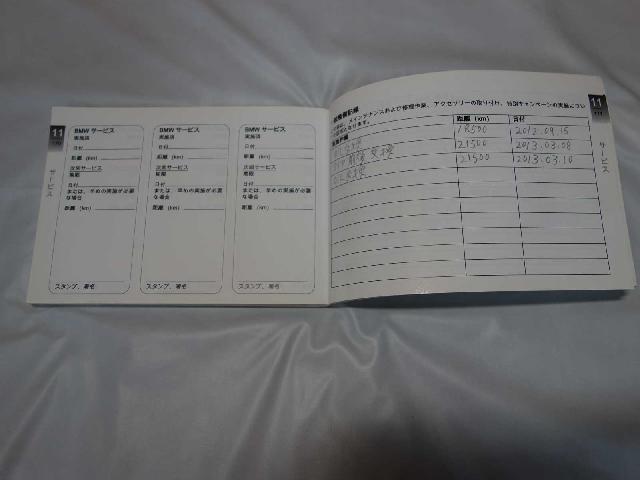 11
サービス
BMW サービス
実施済
日付
距離 (km)
次回サービス
期限
日付
または、早めの実施が必要
な場合
距離 (km)
スタンプ、署名
BMW サービス
実施済
日付
距離 (km)
次回サービス
期限
日付
または、早めの実施が必要
な場合
距離 (km)
スタンプ、署名
BMW サービス
実施済
日付
距離 (km)
次回サービス
期限
日付
または、早めの実施が必要
な場合
距離 (km)
スタンプ、署名
メインテナンスおよび修理作業、アクセサリーの取り付け、特別キャンペーンの実施につい
距離 (km) 日付
18500 2012.09.15
21500 2013.03.08
交換
21500 2013.03.10
11
サービス